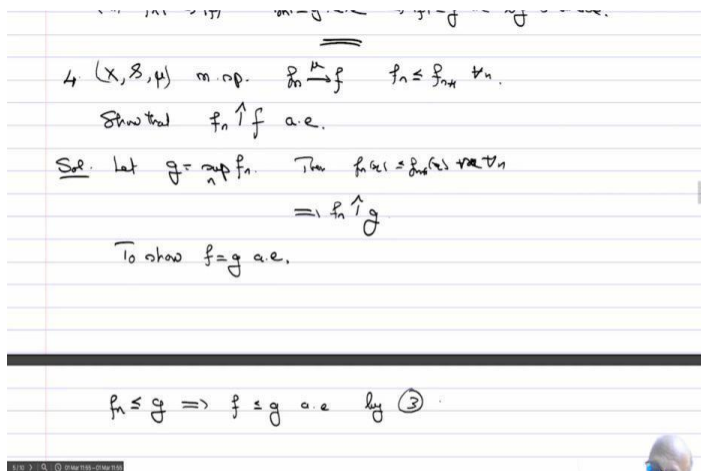 4. (X, S, μ) m. sp. fₙ →^μ f fₙ ≤ fₙ₊₁ ∀n.
Show that fₙ ↑ f a.e.
Sol. Let g = sup_n fₙ. Then fₙ(x) ≤ fₙ₊₁(x) ∀x ∀n
=> fₙ ↑ g
To show f = g a.e.
fₙ ≤ g => f ≤ g a.e by ③.